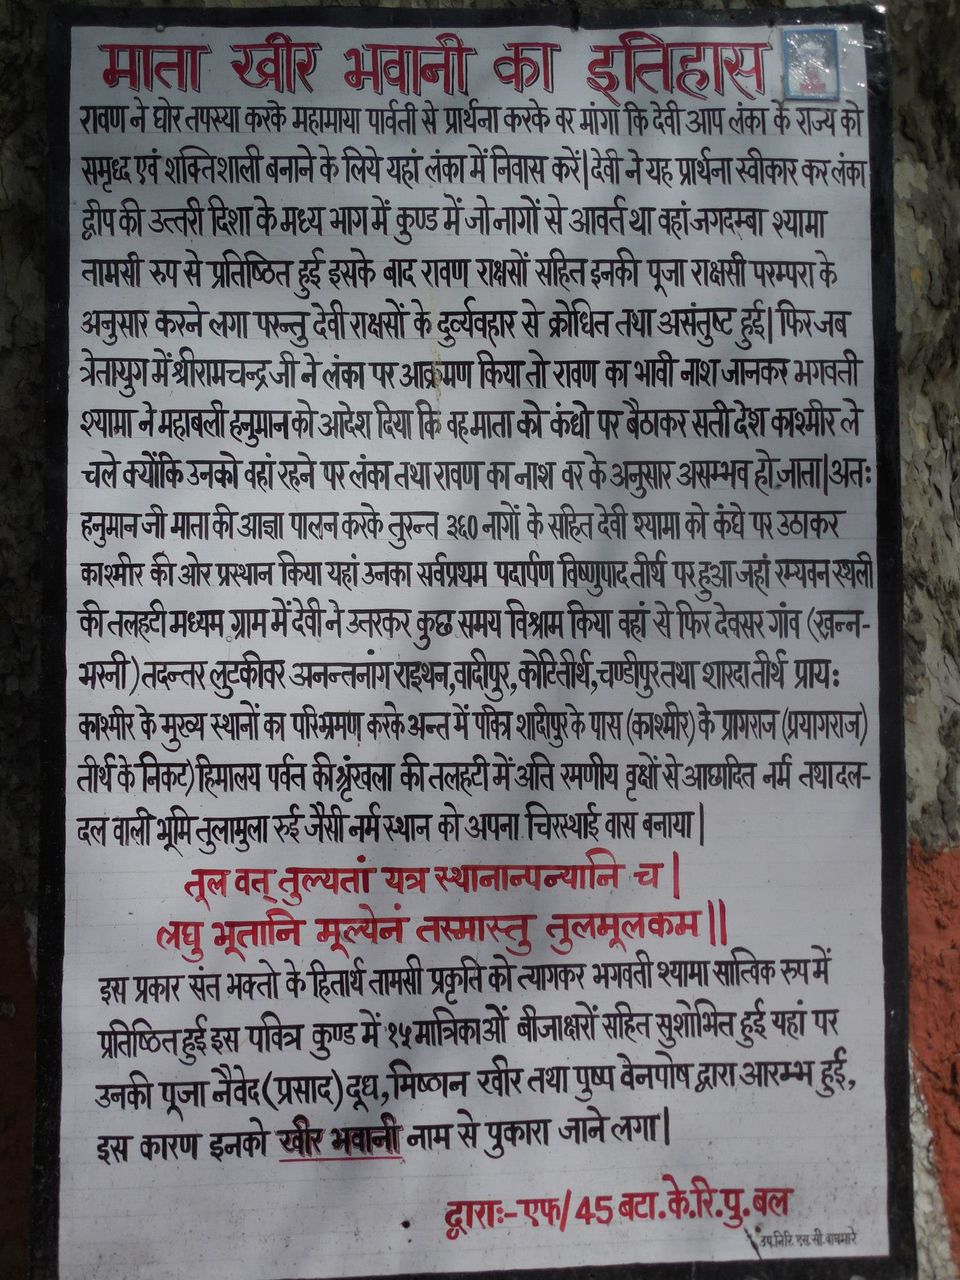 माता खीर भवानी का इतिहास
रावण ने घोर तपस्या करके महामाया पार्वती से प्रार्थना करके वर मांगा कि देवी आप लंका के राज्य को
समृध्द एवं शक्तिशाली बनाने के लिये यहां लंका में निवास करें|देवी ने यह प्रार्थना स्वीकार कर लंका
द्वीप की उत्तरी दिशा के मध्य भाग में कुण्ड में जो नागों से आवर्त था वहां जगदम्बा श्यामा
नामसी रुप से प्रतिष्ठित हुई इसके बाद रावण राक्षसों सहित इनकी पूजा राक्षसी परम्परा के
अनुसार करने लगा परन्तु देवी राक्षसों के दुर्व्यवहार से क्रोधित तथा असंतुष्ट हुई| फिर जब
त्रेतायुग में श्रीरामचन्द्र जी ने लंका पर आक्रमण किया तो रावण का भावी नाश जानकर भगवती
श्यामा ने महाबली हनुमान को आदेश दिया कि वह माता को कंधो पर बैठाकर सती देश काश्मीर ले
चले क्योंकि उनको वहां रहने पर लंका तथा रावण का नाश वर के अनुसार असम्भव हो जाता|अतः
हनुमान जी माता की आज्ञा पालन करके तुरन्त ३६० नागों के सहित देवी श्यामा को कंधे पर उठाकर
काश्मीर की ओर प्रस्थान किया यहां उनका सर्वप्रथम पदार्पण विष्णुपाद तीर्थ पर हुआ जहां रम्यवन स्थली
की तलहटी मध्यम ग्राम में देवी ने उतरकर कुछ समय विश्राम किया वहां से फिर देवसर गांव (खन्न-
भरनी) तदन्तर लुटकीवर अनन्तनांग राइथन,वादीपुर,कोटितीर्थ,चण्डीपुर तथा शारदा तीर्थ प्रायः
काश्मीर के मुख्य स्थानों का परिभ्रमण करके अन्त में पवित्र शादीपुर के पास (काश्मीर) के प्रागराज (प्रयागराज)
तीर्थ के निकट) हिमालय पर्वत की श्रृंखला की तलहटी में अति रमणीय वृक्षों से आछादित नर्म तथा दल-
दल वाली भूमि तुलामुला रुई जैसी नर्म स्थान को अपना चिरस्थाई वास बनाया|
तूल वत् तुल्यतां यत्र स्थानान्पन्यानि च|
लघु भूतानि मूल्येनं तस्मास्तु तुलमूलकम||
इस प्रकार संत भक्तो के हितार्थ तामसी प्रकृति को त्यागकर भगवती श्यामा सात्विक रुप में
प्रतिष्ठित हुई इस पवित्र कुण्ड में १५ मात्रिकाओं बीजाक्षरों सहित सुशोभित हुई यहां पर
उनकी पूजा नैवेद(प्रसाद) दूध,मिष्ठान खीर तथा पुष्प वेनपोष द्वारा आरम्भ हुई,
इस कारण इनको खीर भवानी नाम से पुकारा जाने लगा|
द्वाराः-एफ/45 बटा.के.रि.पु.बल
उप.निरि.एस.सी.वाघमारे